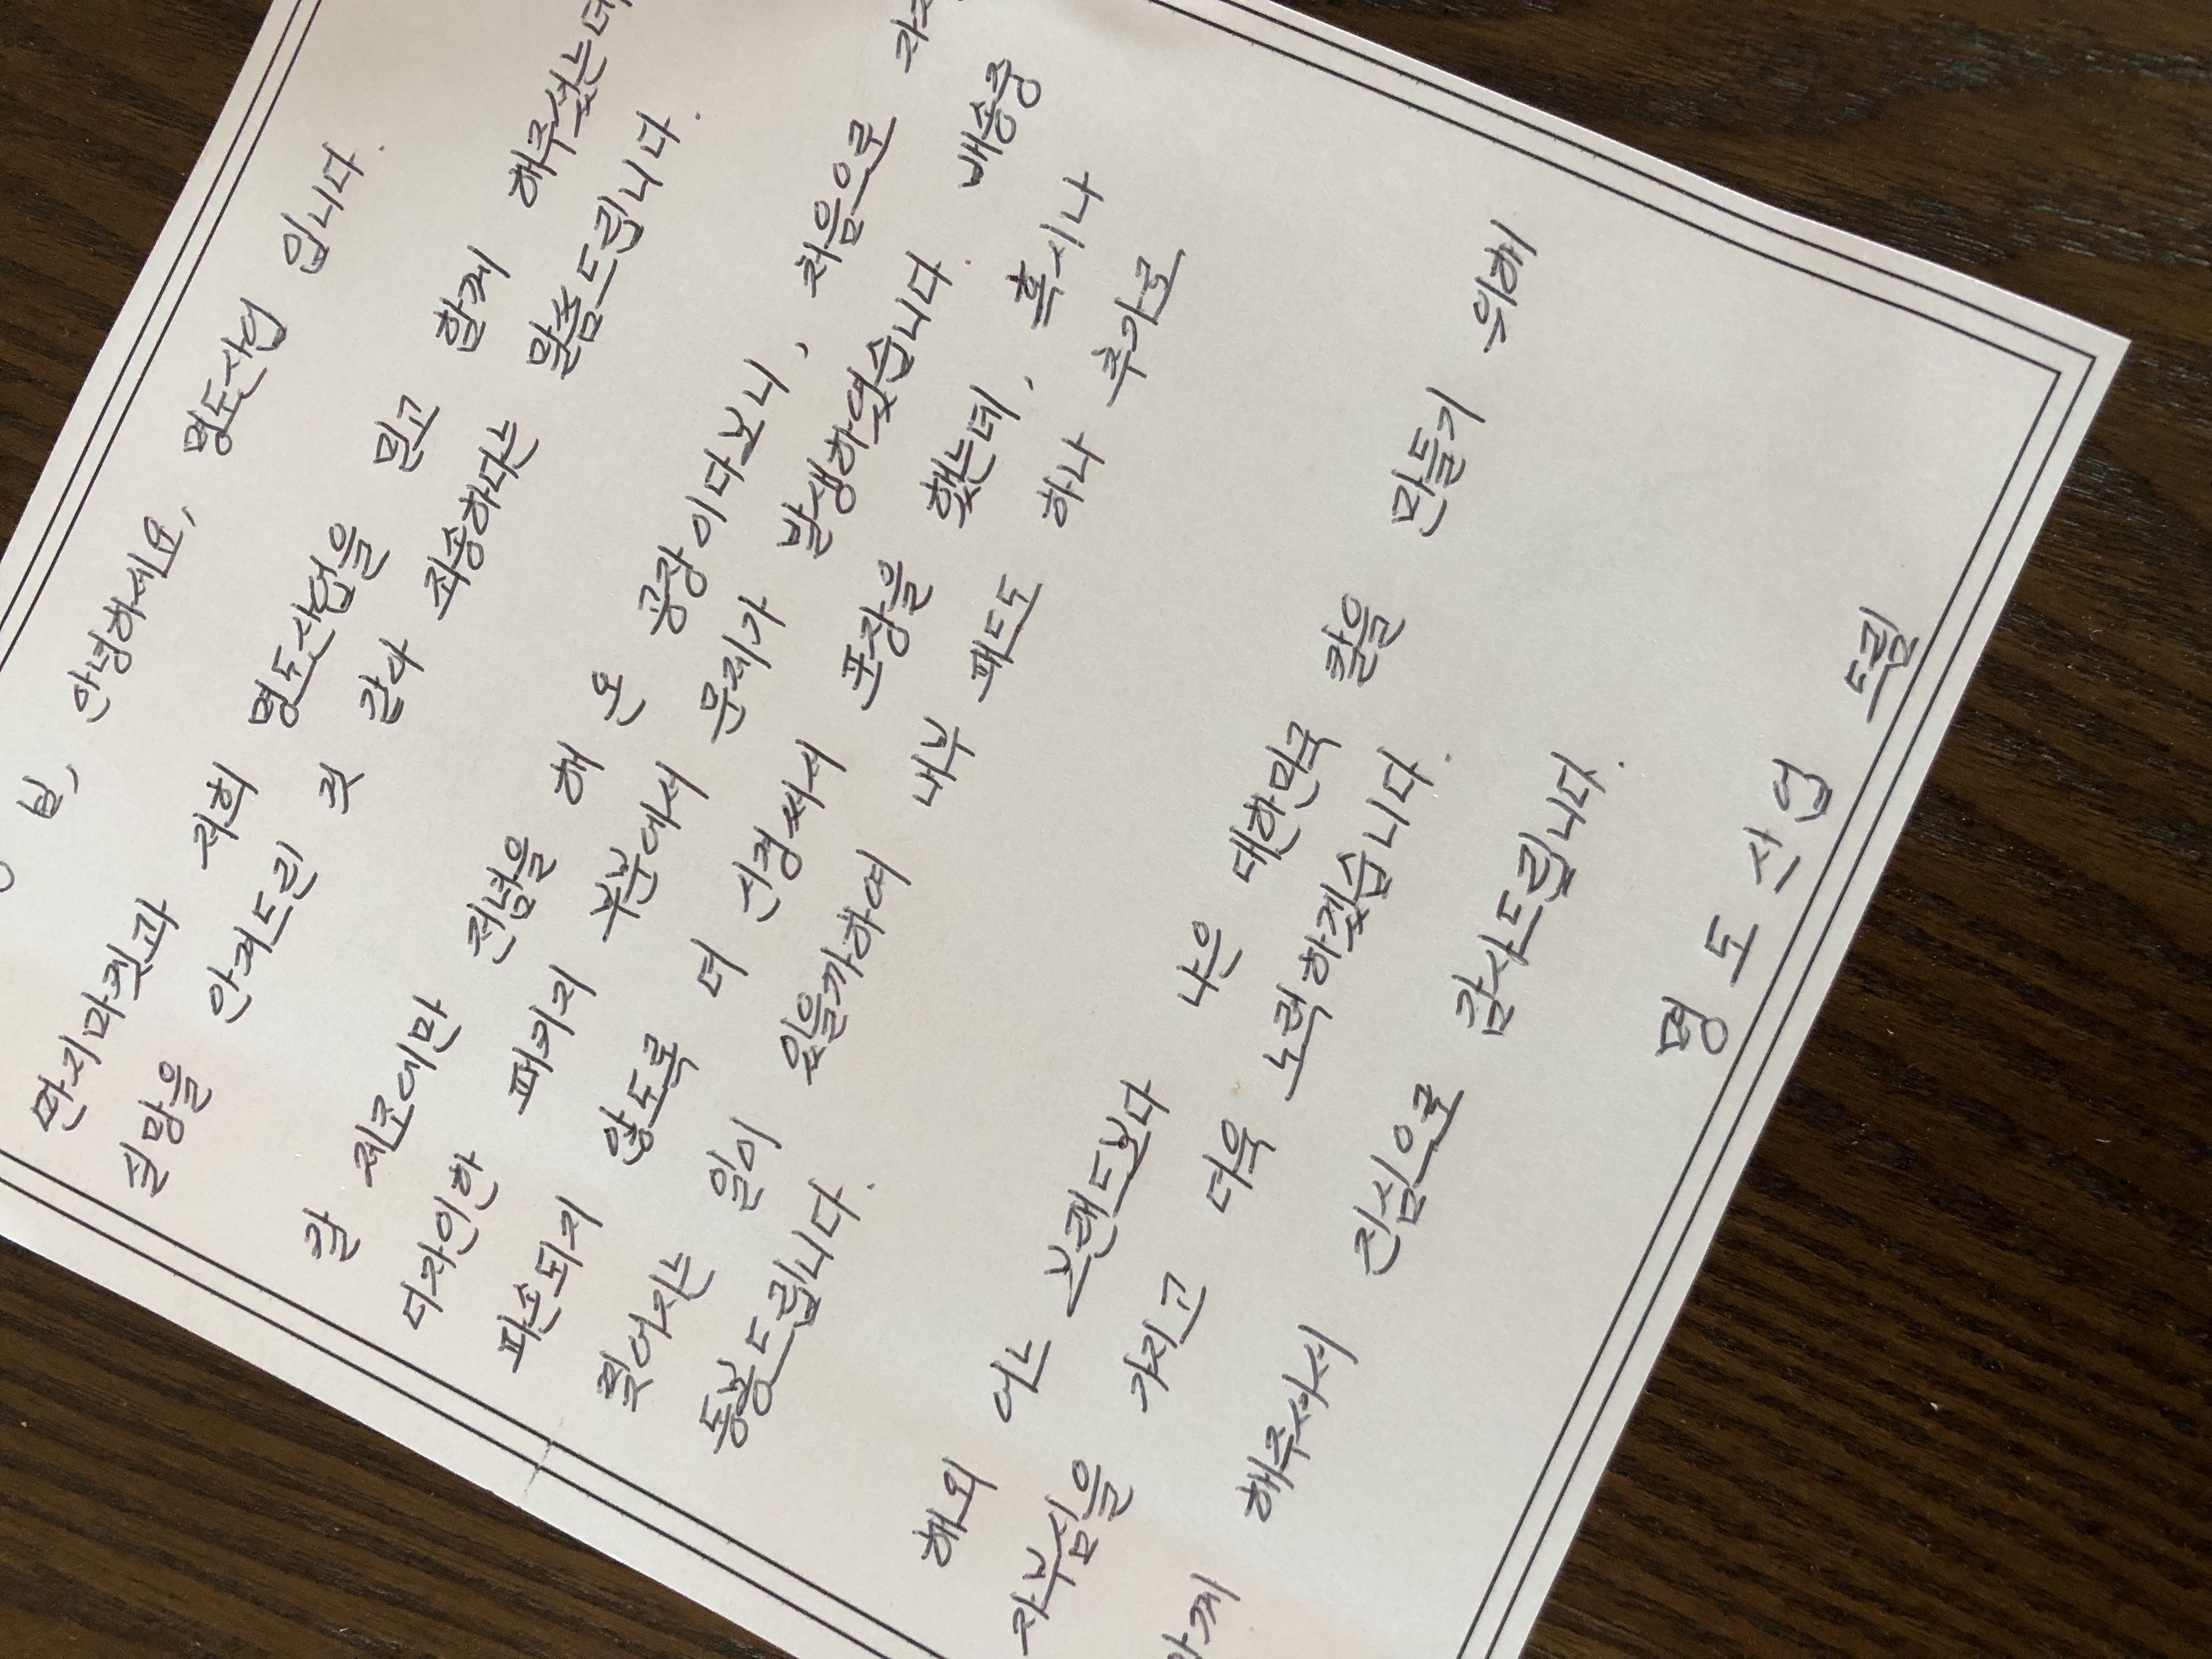 님, 안녕하세요, 명도산업 입니다.
딴지마켓과 저희 명도산업을 믿고 함께 해주셨는데
실망을 안겨드린 것 같아 죄송하다는 말씀드립니다.
칼 제조에만 전념을 해 온 공장이다보니, 처음으로
디자인한 패키지 부분에서 문제가 발생하였습니다. 배송중
파손되지 않도록 더 신경써서 포장을 했는데, 혹시나
찢어지는 일이 있을까하여 내부 패드도 하나 추가로
동봉드립니다.
해외 어느 브랜드보다 나은 대한민국 칼을 만들기 위해
자부심을 가지고 더욱 노력하겠습니다.
함께 해주셔서 진심으로 감사드립니다.
명도산업 드림